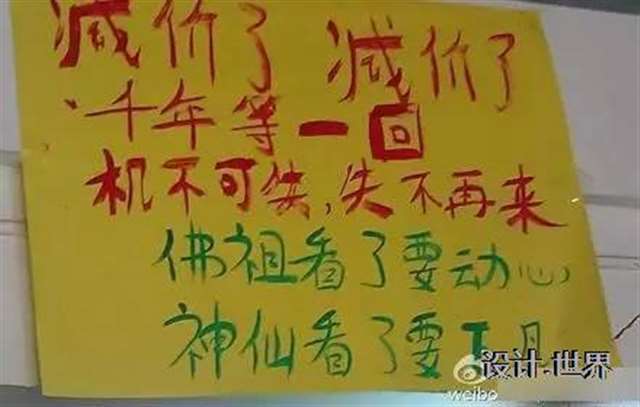 减价了 减价了
千年等一回
机不可失,失不再来
佛祖看了要动心
神仙看了要下凡
设计.世界
weibo